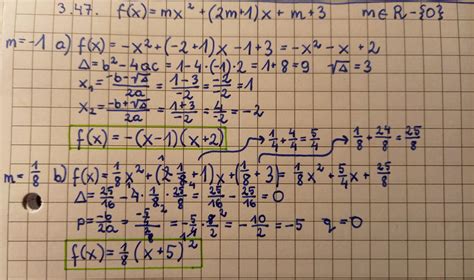 3.47. f(x) = mx² + (2m+1)x + m+3 m∈R-{0}
m=-1 a) f(x) = -x² + (-2+1)x -1+3 = -x² - x + 2
Δ = b² - 4ac = 1-4·(-1)·2 = 1+8 = 9 √Δ = 3
x₁ = (-b-√Δ)/2a = (1-3)/-2 = -2/-2 = 1
x₂ = (-b+√Δ)/2a = (1+3)/-2 = 4/-2 = -2
f(x) = -(x-1)(x+2)
1/4 + 4/4 = 5/4 1/8 + 24/8 = 25/8
m = 1/8 b) f(x) = 1/8 x² + (2·1/8+1)x + (1/8+3) = 1/8 x² + 5/4 x + 25/8
Δ = 25/16 - 4·1/8·25/8 = 25/16 - 25/16 = 0
p = -b/2a = (-5/4)/(2/8) = -5/4·8/2 = -10/2 = -5 q = 0
f(x) = 1/8 (x+5)²